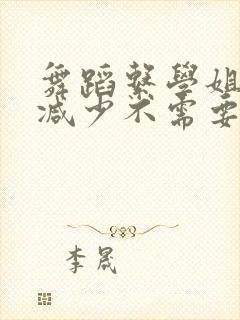 舞蹈繫學姐
減少不需要
李晟